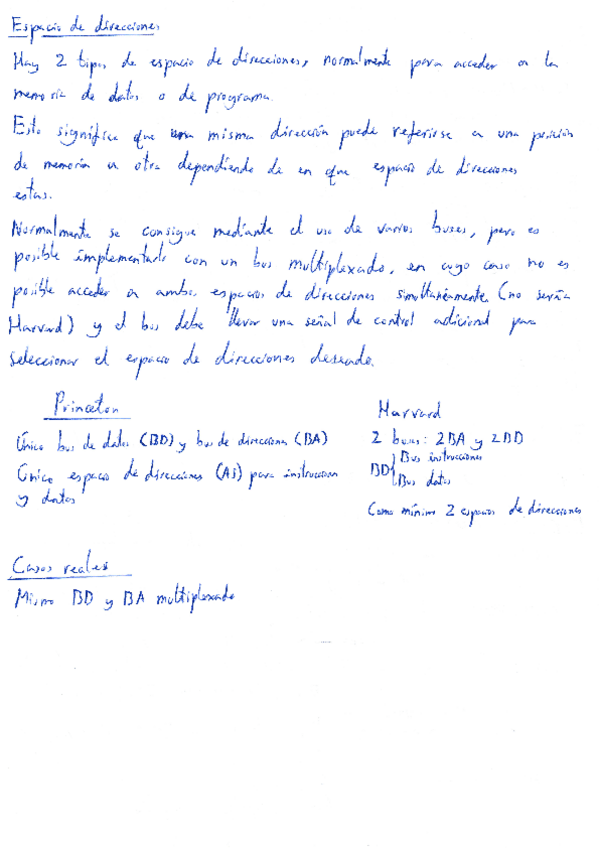 Espacio de direcciones
Hay 2 tipos de espacio de direcciones, normalmente para acceder a la
memoria de datos o de programa.
Esto significa que una misma dirección puede referirse a una posición
de memoria u otra dependiendo de en que espacio de direcciones
estas.
Normalmente se consigue mediante el uso de varios buses, pero es
posible implementarlo con un bus multiplexado, en cuyo caso no es
posible acceder a ambos espacios de direcciones simultáneamente (no sería
Harvard) y el bus debe llevar una señal de control adicional para
seleccionar el espacio de direcciones deseado.
Princeton
Único bus de datos (BD) y bus de direcciones (BA)
Único espacio de direcciones (AS) para instrucciones
y datos
Harvard
2 buses: 2BA y 2BD
BD{ Bus instrucciones
Bus datos
Como mínimo 2 espacios de direcciones
Casos reales
Mismo BD y BA multiplexado